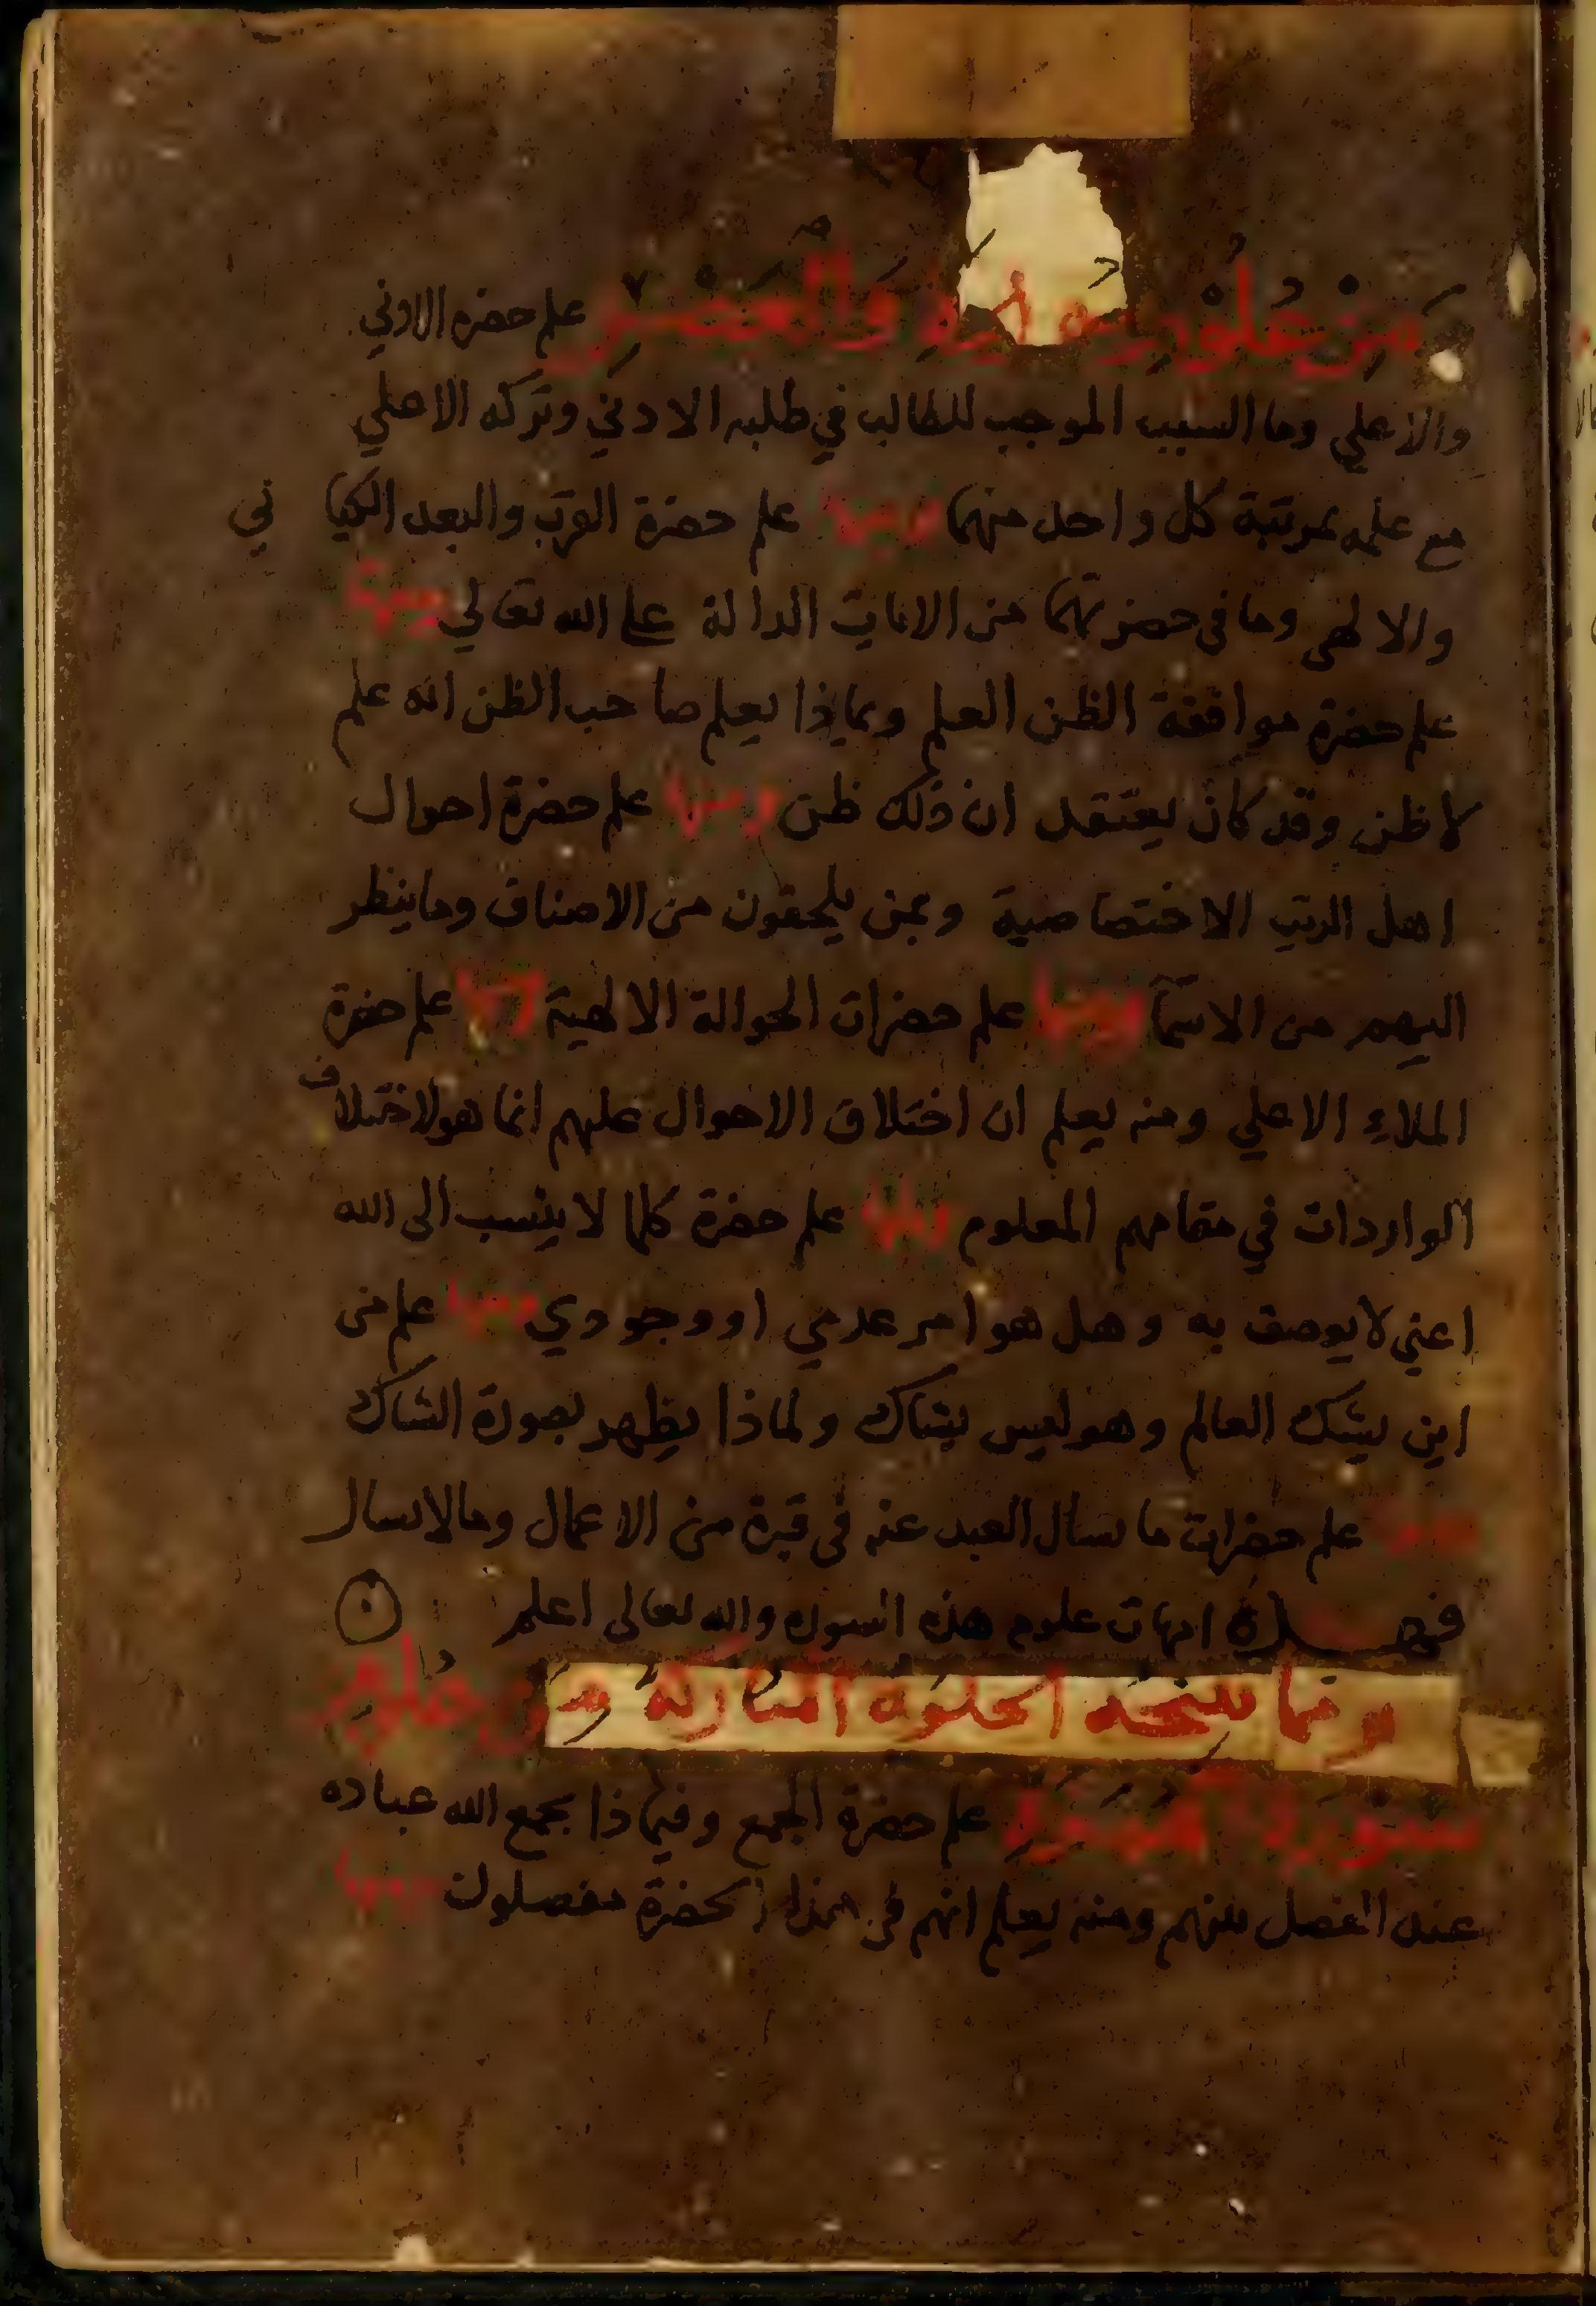 من علوم سورة والعصر علم حضره الادني
والاعلي وما السبب الموجب للطالب في طلبه الادني وتركه الاعلي
مع علمه بمرتبة كل واحد منهما ومنها علم حضرة القرب والبعد الكيا ني
والالهى وما فى حضرتهما من الايات الدالة على الله تعالي ومنها
علم حضرة موافقة الظن العلم وبماذا يعلم صاحب الظن انه علم
لا ظن وقد كان يعتقد ان ذلك ظن ومنها علم حضرة احوال
اهل الرتب الاختصاصية وبمن يلحقون من الاصناف وما ينظر
اليهم من الاسما ومنها علم حضرات الحوالة الالهية ومنها علم حضرة
الملاء الاعلي ومنه يعلم ان اختلاف الاحوال عليهم انما هو لاختلاف
الواردات في مقامهم المعلوم ومنها علم حضرة كلما لا ينسب الى الله
اعني لا يوصف به وهل هو امر عدمي او وجودي ومنها علم من
اين يشك العالم وهو ليس بشاك ولماذا يظهر بصورة الشاك
ومنها علم حضرات ما يسال العبد عنه فى قبرة من الاعمال وما لا يسال
فهذه امهات علوم هذه السوره والله تعالى اعلم
ومما تنتجه الخلوه المباركة من علوم
سورة علم حضرة الجمع وفيماذا يجمع الله عباده
عند الفصل بينهم ومنه يعلم انهم فى هذا الحضرة مفصلون ومنها